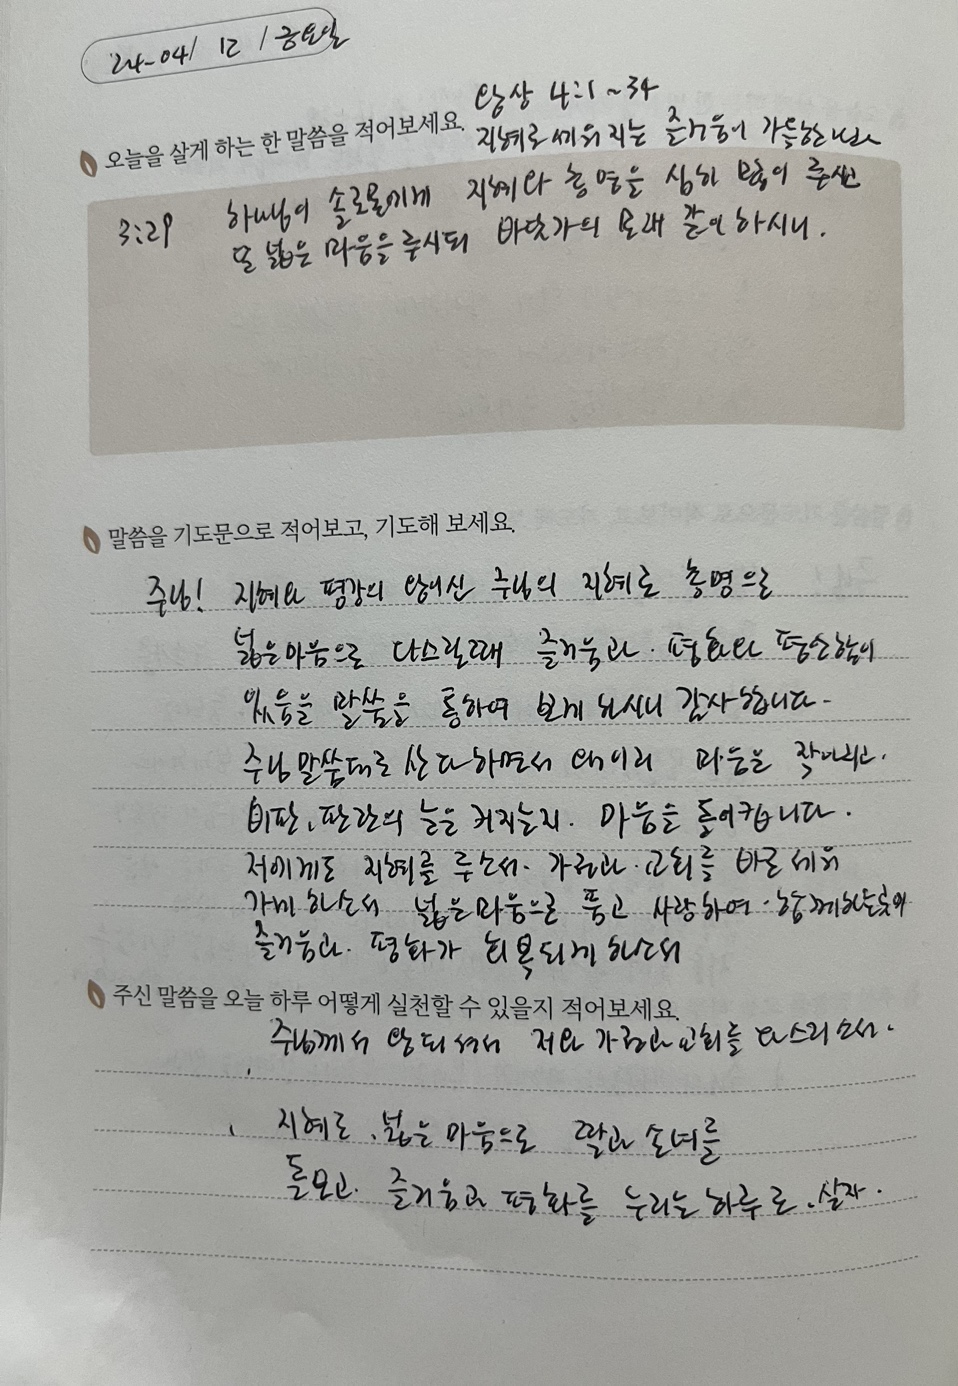 '24-04/ 12 / 금요일
왕상 4:1~34
오늘을 살게 하는 한 말씀을 적어보세요.
지혜로 세워지는 즐거움이 가득한 나라
3:29 하나님이 솔로몬에게 지혜와 총명을 심히 많이 주시고
또 넓은 마음을 주시되 바닷가의 모래 같이 하시니.
말씀을 기도문으로 적어보고, 기도해 보세요.
주님! 지혜와 평강의 왕이신 주님의 지혜로 총명으로
넓은마음으로 다스릴때 즐거움과. 평화와 평안함이
있음을 말씀을 통하여 보게 하시니 감사합니다.
주님 말씀대로 산다 하면서 왜이리 마음은 작아지고.
비판, 판단의 눈은 커지는지. 마음을 돌이킵니다.
저에게도 지혜를 주소서. 가정과. 교회를 바로 세워
가게 하소서 넓은마음으로 품고 사랑하여. 함께하는곳에
즐거움과. 평화가 회복되게 하소서
주신 말씀을 오늘 하루 어떻게 실천할 수 있을지 적어보세요.
주님께서 왕되셔서 저와 가정과 교회를 다스리소서.
지혜로, 넓은 마음으로 딸과 손녀를
돌보고. 즐거움과 평화를 누리는 하루로. 살자.